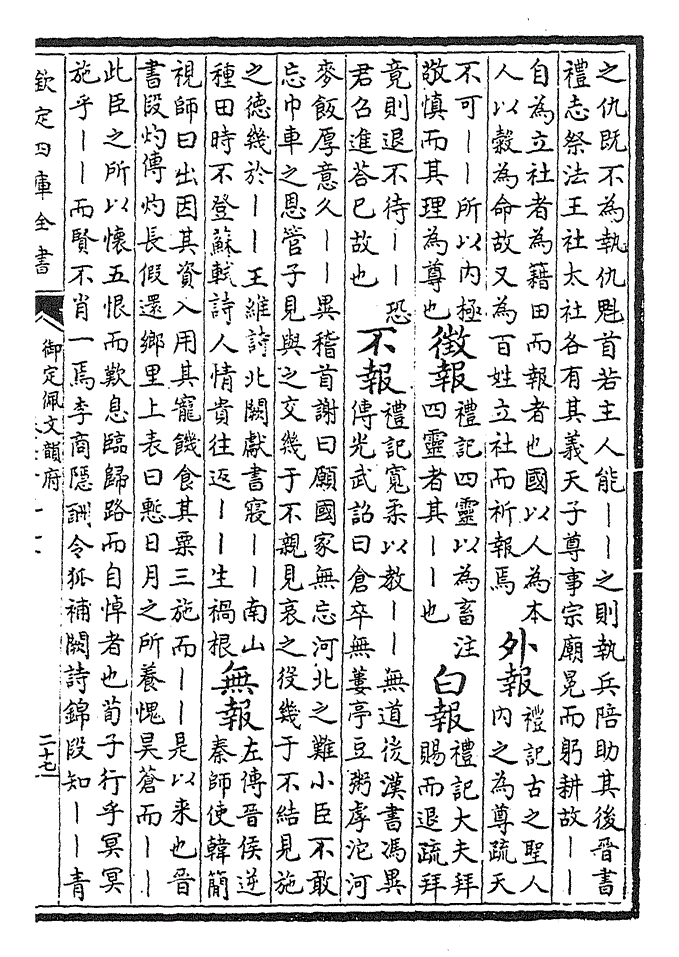 之仇既不為執仇魁首若主人能——之則執兵陪助其後晉書
禮志祭法王社太社各有其義天子尊事宗廟冕而躬耕故——
自為立社者為藉田而報者也國以人為本
人以穀為命故又為百姓立社而祈報焉
外報
禮記古之聖人
内之為尊疏天
不可——所以内極
敬慎而其理為尊也
徵報
禮記四靈以為畜注
四靈者其——也
白報
禮記大夫拜
賜而退疏拜
竟則退不待——恐
君召進荅已故也
不報
禮記寛柔以教——無道後漢書馮異
傳光武詔曰倉卒無蔞亭豆粥虖沱河
麥飯厚意久——異稽首謝曰願國家無忘河北之難小臣不敢
忘巾車之恩管子見與之交幾于不親見哀之役幾于不結見施
之德幾於——王維詩北闕獻書寢——南山
種田時不登蘇軾詩人情貴往返——生禍根
無報
左傳晉侯逆
秦師使韓簡
視師曰出因其資入用其寵饑食其粟三施而——是以来也晉
書段灼傳灼長假還鄉里上表曰慙日月之所養愧昊蒼而——
此臣之所以懷五恨而歎息臨歸路而自悼者也荀子行乎冥冥
施乎——而賢不肖一焉李商隱詶令狐補闕詩錦段知——青
欽定四庫全書
御定佩文韻府
二十七